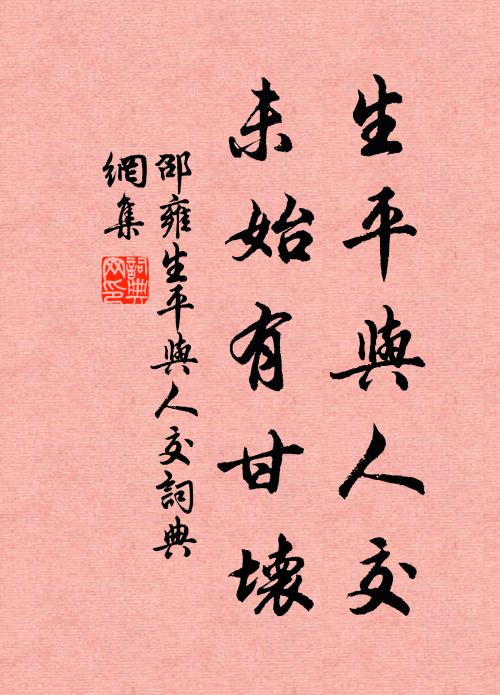 生平與人交
未始有甘壞
邵雍生平與人交詞典
網集
詞典網印